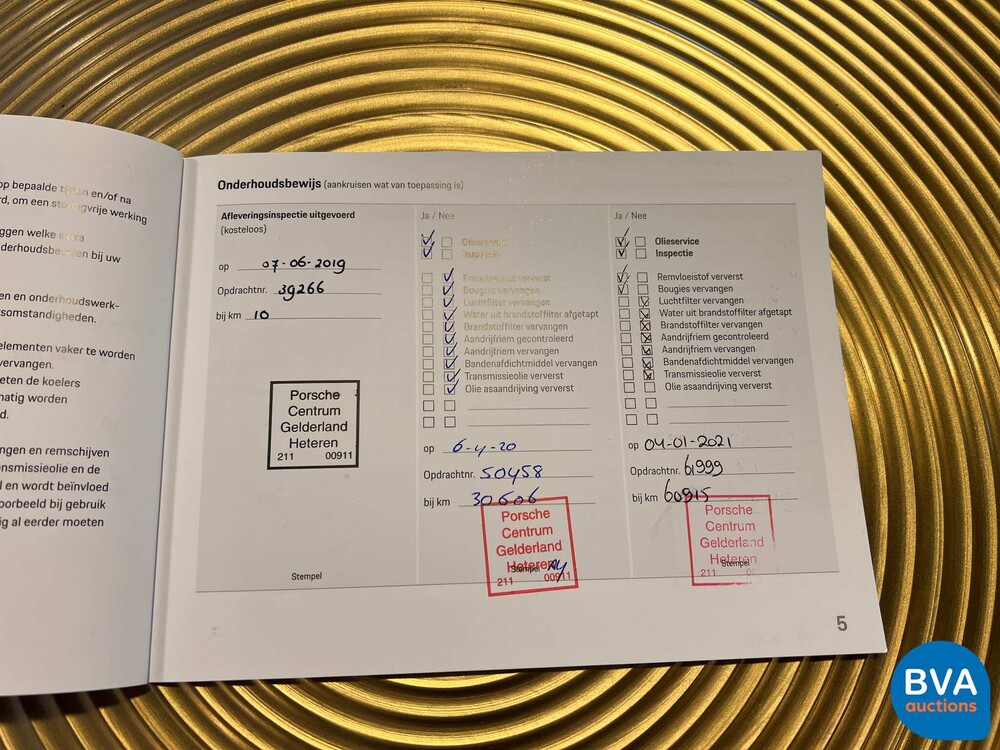 op bepaalde tijden en/of na
rd, om een storingvrije werking
ggen welke extra
derhoudsbeurten bij uw
en en onderhoudswerk-
somstandigheden.
elementen vaker te worden
vervangen.
eten de koelers
matig worden
d.
ngen en remschijven
nsmissieolie en de
l en wordt beïnvloed
oorbeeld bij gebruik
ig al eerder moeten
Onderhoudsbewijs (aankruisen wat van toepassing is)
Afleveringsinspectie uitgevoerd
(kosteloos)
op 07-06-2019
Opdrachtnr. 39266
bij km 10
Porsche
Centrum
Gelderland
Heteren
211 00911
Stempel
Ja / Nee
Olieservice
Inspectie
Remvloeistof ververst
Bougies vervangen
Luchtfilter vervangen
Water uit brandstoffilter afgetapt
Brandstoffilter vervangen
Aandrijfriem gecontroleerd
Aandrijfriem vervangen
Bandenafdichtmiddel vervangen
Transmissieolie ververst
Olie asaandrijving ververst
op 6-4-20
Opdrachtnr. 50458
bij km 30606
Porsche
Centrum
Gelderland
Heteren
Stempel
211 00911
Ja / Nee
Olieservice
Inspectie
Remvloeistof ververst
Bougies vervangen
Luchtfilter vervangen
Water uit brandstoffilter afgetapt
Brandstoffilter vervangen
Aandrijfriem gecontroleerd
Aandrijfriem vervangen
Bandenafdichtmiddel vervangen
Transmissieolie ververst
Olie asaandrijving ververst
op 04-01-2021
Opdrachtnr. 61999
bij km 60915
Porsche
Centrum
Gelderland
Heteren
Stempel
211
5
BVA
auctions